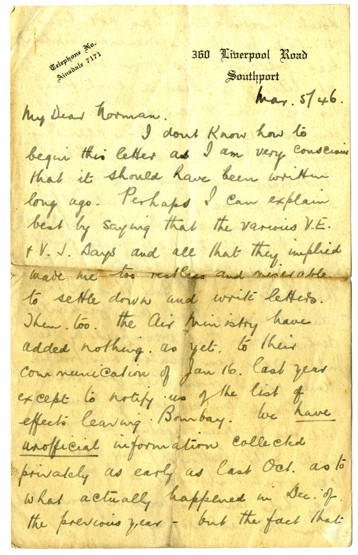 Telephone No.
Ainsdale 7171
360 Liverpool Road
Southport
Mar. 5/46.
My Dear Norman.
I dont know how to
begin this letter as I am very conscious
that it should have been written
long ago. Perhaps I can explain
best by saying that the various V.E.
& V.J. Days and all that they implied
made me too restless and miserable
to settle down and write letters.
Then, too, the Air Ministry have
added nothing, as yet, to their
communication of Jan 16. last year
except to notify us of the list of
effects leaving Bombay. We have
unofficial information collected
privately as early as last Oct. as to
what actually happened in Dec. of
the previous year - but the fact that